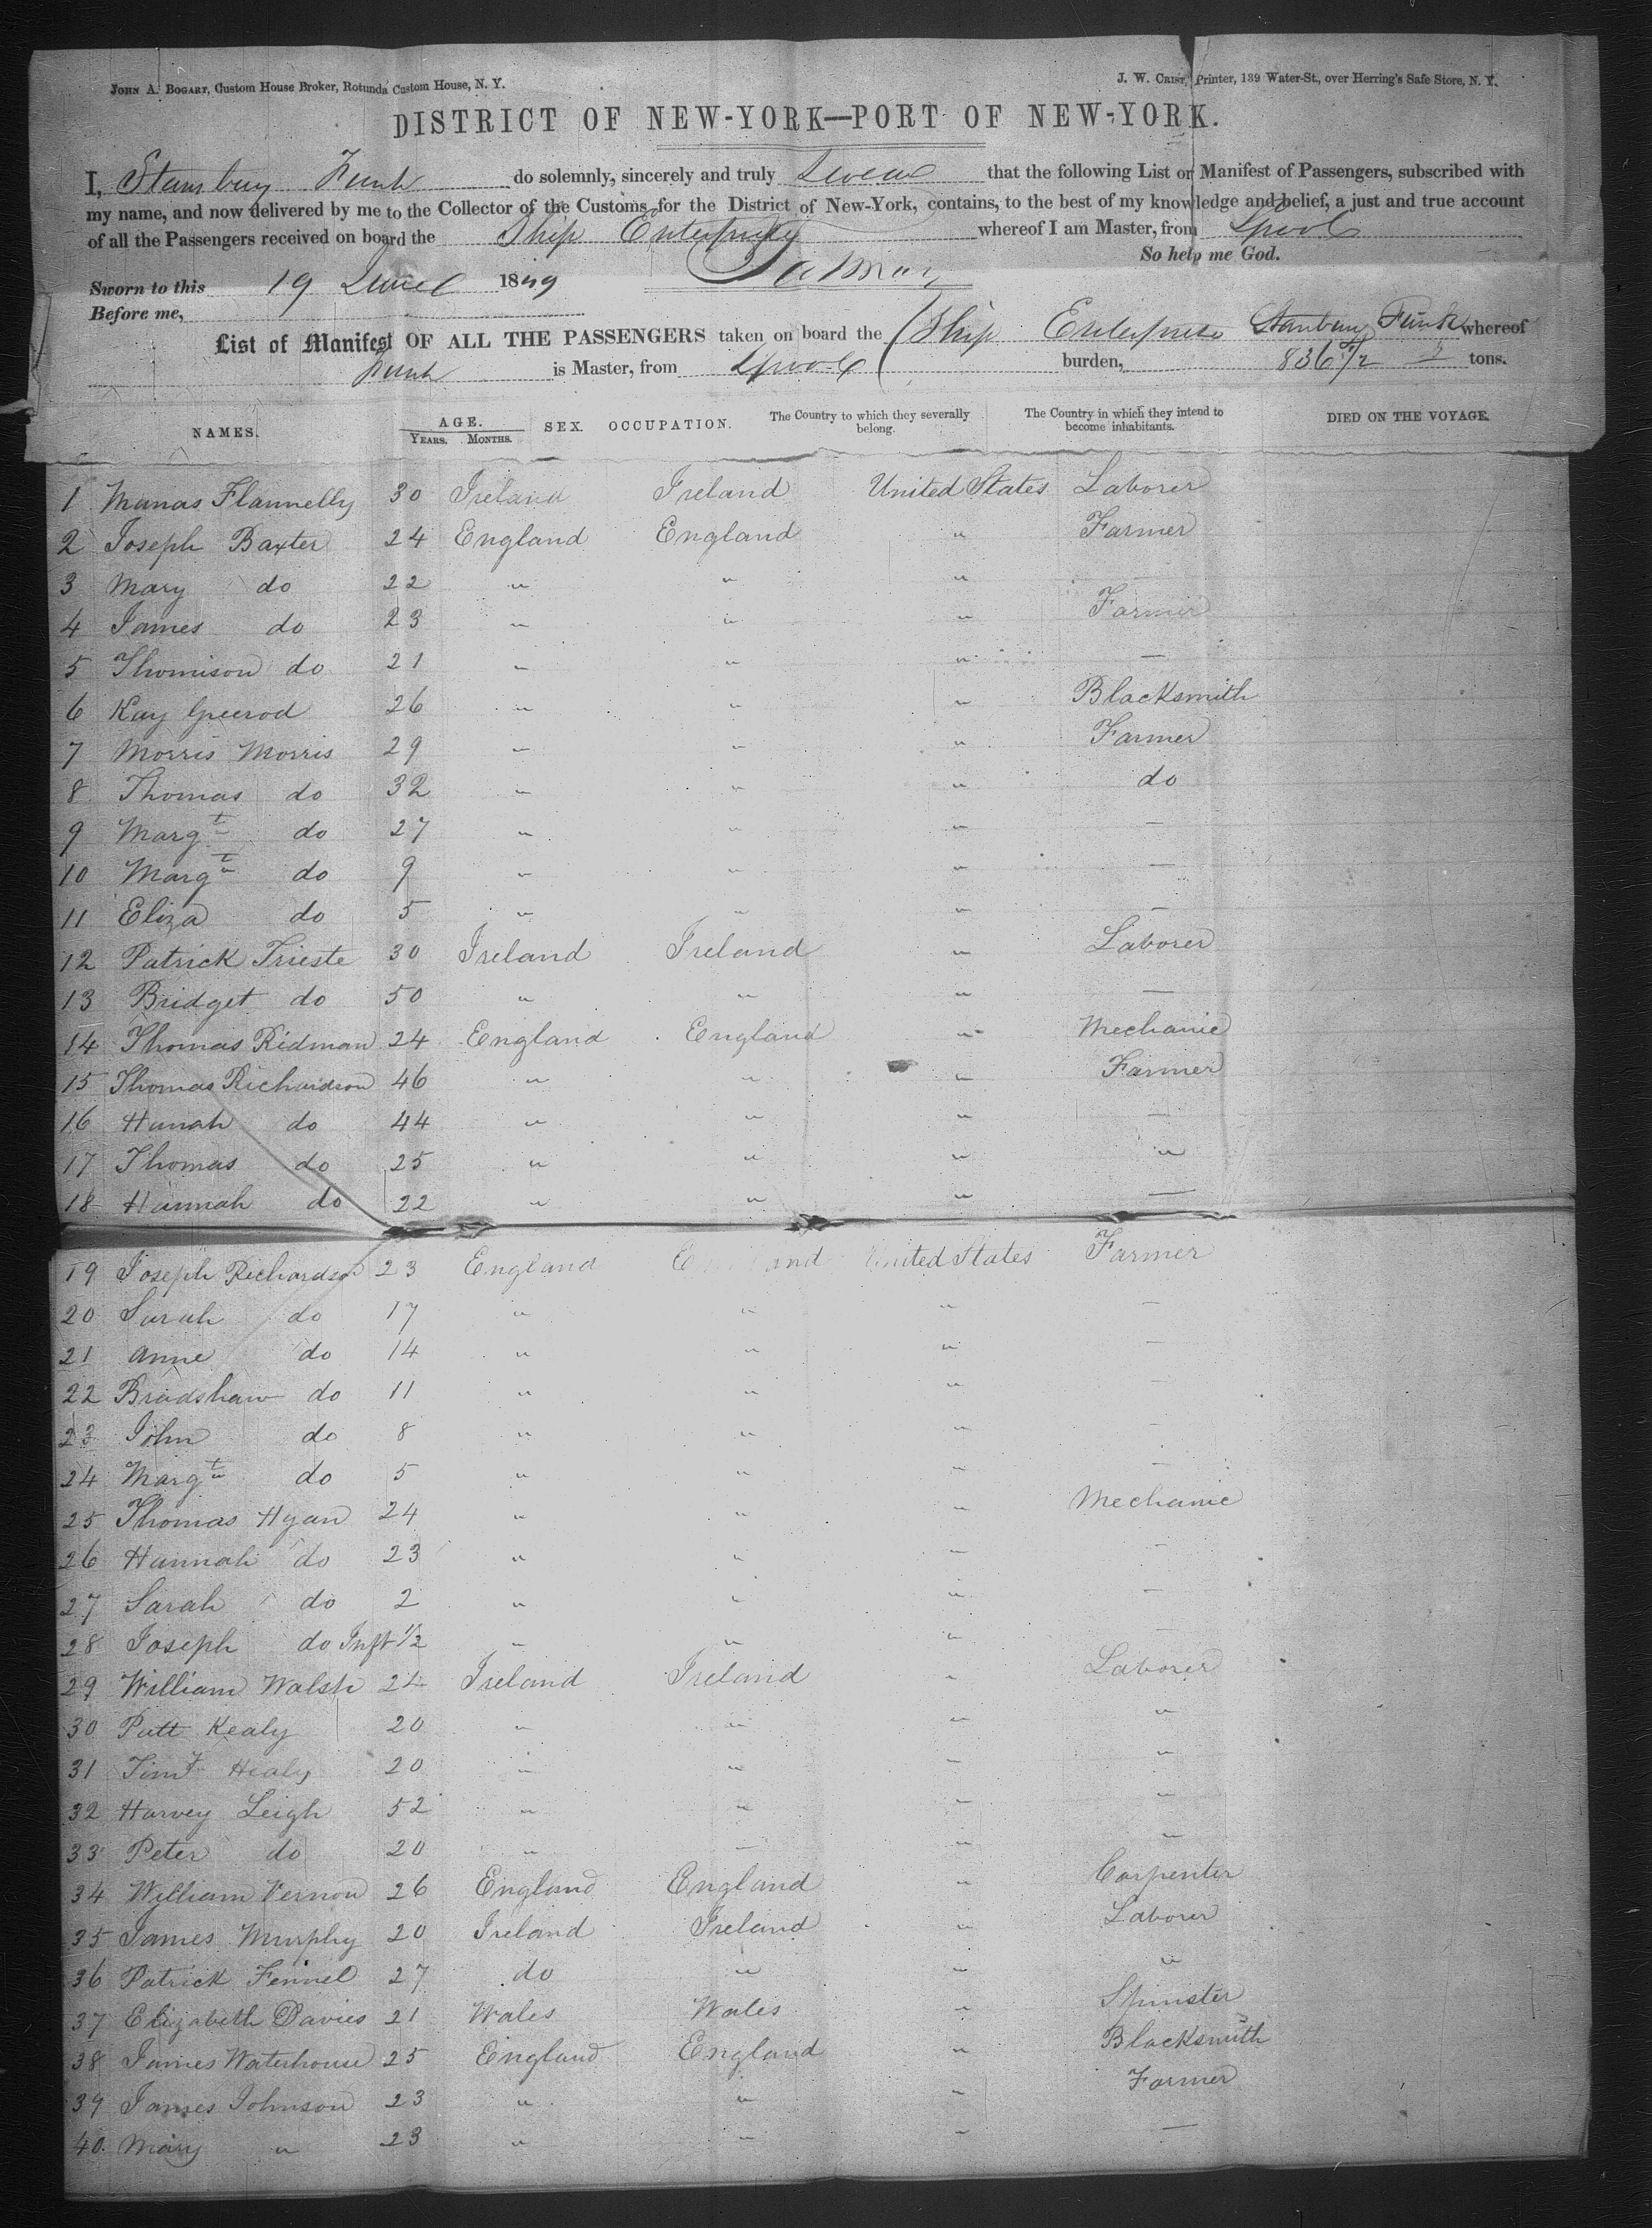 JOHN A. BOGART, Custom House Broker, Rotunda Custom House, N. Y.
J. W. CRIST, Printer, 139 Water-St., over Herring's Safe Store, N. Y.
DISTRICT OF NEW-YORK—PORT OF NEW-YORK.
I, Stanbury Funk do solemnly, sincerely and truly Swear that the following List or Manifest of Passengers, subscribed with
my name, and now delivered by me to the Collector of the Customs for the District of New-York, contains, to the best of my knowledge and belief, a just and true account
of all the Passengers received on board the Ship Enterprize whereof I am Master, from Lpool
So help me God.
Sworn to this 19 1849
Before me,
List of Manifest OF ALL THE PASSENGERS taken on board the Ship Enterprise Stanbury Funk whereof
Funk is Master, from Lpool burden, 836 tons.
NAMES. AGE. YEARS. MONTHS. SEX. OCCUPATION. The Country to which they severally belong. The Country in which they intend to become inhabitants. DIED ON THE VOYAGE.
1 Manas Flannelly 30 Ireland Ireland United States Laborer
2 Joseph Baxter 24 England England " Farmer
3 Mary do 22 " " " —
4 James do 23 " " " Farmer
5 Thomison do 21 " " " —
6 Kay 26 " " " Blacksmith
7 Morris Morris 29 " " " Farmer
8 Thomas do 32 " " " do
9 Margt do 27 " " " —
10 Margt do 9 " " " —
11 Eliza do 5 " " " —
12 Patrick Trieste 30 Ireland Ireland " Laborer
13 Bridget do 50 " " " —
14 Thomas Ridman 24 England England " Mechanic
15 Thomas Richardson 46 " " " Farmer
16 Hanah do 44 " " " —
17 Thomas do 25 " " " "
18 Hannah do 22 " " " —
19 Joseph Richardson 23 England England United States Farmer
20 Sarah do 17 " " " —
21 Anne do 14 " " " —
22 Bradshaw do 11 " " " —
23 John do 8 " " " —
24 Margt do 5 " " " —
25 Thomas Hyan 24 " " " Mechanic
26 Hannah do 23 " " " —
27 Sarah do 2 " " " —
28 Joseph do Inft 1/2 " " " —
29 William Walsh 24 Ireland Ireland " Laborer
30 Patt Kealy 20 " " " "
31 Timy Healy 20 " " " "
32 Harvey Leigh 52 " " " "
33 Peter do 20 " " " "
34 William Vernon 26 England England " Carpenter
35 James Murphy 20 Ireland Ireland " Laborer
36 Patrick Fennel 27 do " " "
37 Elizabeth Davies 21 Wales Wales " Spinster
38 James Waterhouse 25 England England " Blacksmith
39 James Johnson 23 " " " Farmer
40 Mary " 23 " " " —